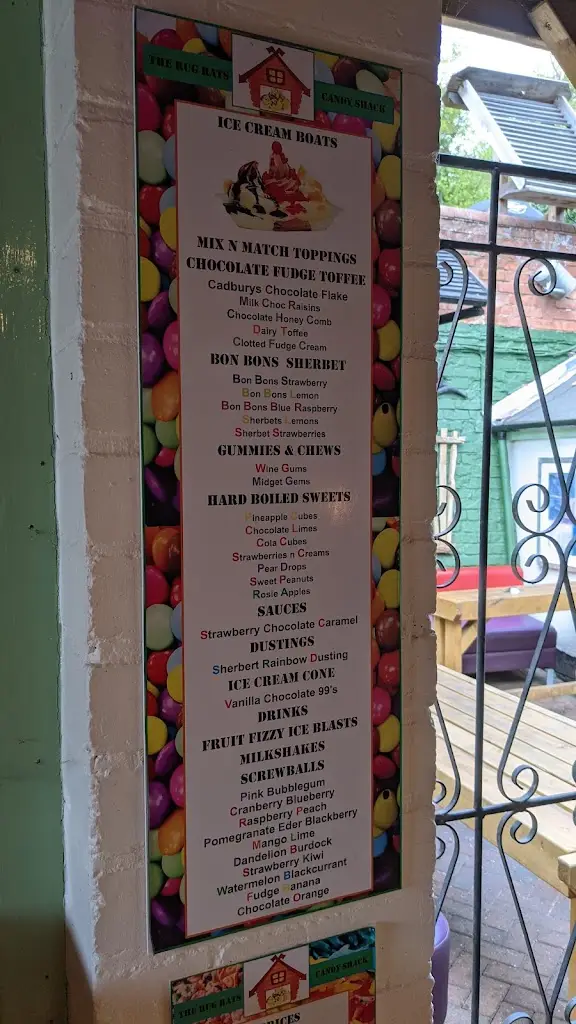 THE RUG RATS CANDY SHACK
ICE CREAM BOATS
MIX N MATCH TOPPINGS
CHOCOLATE FUDGE TOFFEE
Cadburys Chocolate Flake
Milk Choc Raisins
Chocolate Honey Comb
Dairy Toffee
Clotted Fudge Cream
BON BONS SHERBET
Bon Bons Strawberry
Bon Bons Lemon
Bon Bons Blue Raspberry
Sherbets Lemons
Sherbet Strawberries
GUMMIES & CHEWS
Wine Gums
Midget Gems
HARD BOILED SWEETS
Pineapple Cubes
Chocolate Limes
Cola Cubes
Strawberries n Creams
Pear Drops
Sweet Peanuts
Rosie Apples
SAUCES
Strawberry Chocolate Caramel
DUSTINGS
Sherbert Rainbow Dusting
ICE CREAM CONE
Vanilla Chocolate 99's
DRINKS
FRUIT FIZZY ICE BLASTS
MILKSHAKES
SCREWBALLS
Pink Bubblegum
Cranberry Blueberry
Raspberry Peach
Pomegranate Eder Blackberry
Mango Lime
Dandelion Burdock
Strawberry Kiwi
Watermelon Blackcurrant
Fudge Banana
Chocolate Orange
THE RUG RATS CANDY SHACK
PRICES